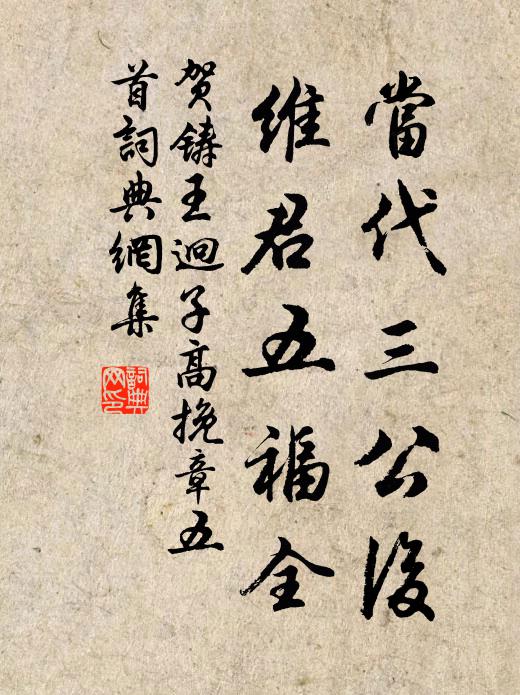 當代三公後
維君五福全
贺鑄王迥子高挽章五
首詞典網集
詞典
网印